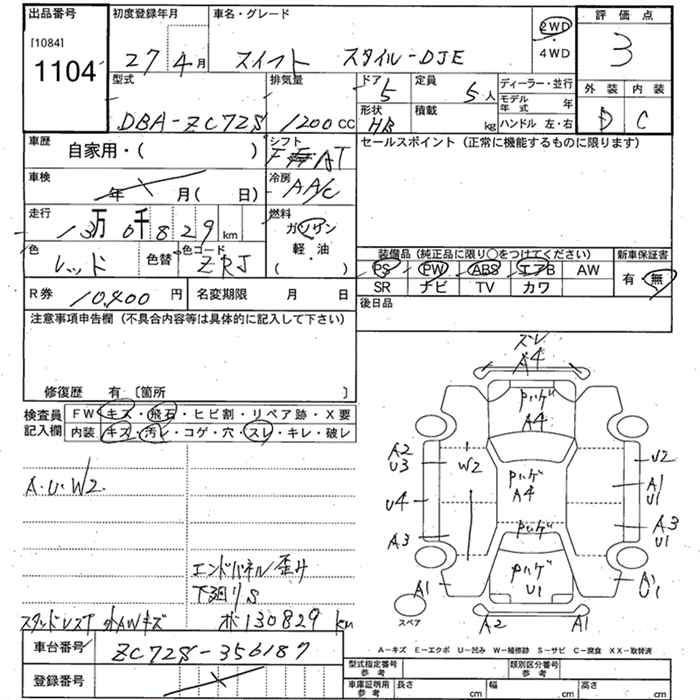 出品番号 初度登録年月 車名・グレード 評価点
[1084]
1104 27年4月 スイフト スタイル-DJE 2WD ・4WD 3
型式 排気量 ドア 定員 ディーラー・並行 外装 内装
DBA-ZC72S 1200cc 5 5人 モデル年式 年 D C
形状 積載 ハンドル 左・右
HB kg
車歴 シフト セールスポイント(正常に機能するものに限ります)
自家用・( ) AT
車検 冷房
年 月( 日) AA/C
走行 燃料
13万0千829km ガソリン・軽・油( )
色 色コード
レッド 色替 ZRJ
装備品(純正品に限り○をつけてください) 新車保証書
PS PW ABS エアB AW 有・無
SR ナビ TV カワ
R券 10,400円 名変期限 月 日 後日品
注意事項申告欄(不具合内容等は具体的に記入して下さい)
修復歴 有〔箇所 〕
検査員記入欄 FW キズ・飛石・ヒビ割・リペア跡・X要
内装 キズ・汚レ・コゲ・穴・スレ・キレ・破レ
A・U・W2
エンドパネル歪み
下廻りS
スタンドレスT 外AWキズ オド130829km
ズレ
A4
Pハゲ
A4
A2
U3
W2
Pハゲ
A4
U2
A1
U1
U4
A3
Pハゲ
A3
U1
A1
Pハゲ
U1
A1
U1
スペア
A2
A1
A-キズ E-エクボ U-凹み W-補修跡 S-サビ C-腐食 XX-取替済
車台番号 ZC72S-356187
登録番号
型式指定番号 参考 類別区分番号 参考
車庫証明用 参考 長さ cm 幅 cm 高さ cm